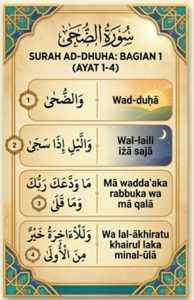 سُورَةُ الضُّحَى
SURAH AD-DHUHA: BAGIAN 1
(AYAT 1-4)
1
وَالضُّحَى
Wad-ḍuḥā
2
وَالَّيْلِ إِذَا سَجَىٰ
Wal-laili
iżā sajā
3
مَا وَدَّعَكَ رَبُّكَ
وَمَا قَلَىٰ
Mā wadda'aka
rabbuka wa
mā qalā
4
وَلَلْآخِرَةُ خَيْرٌ
مِنَ الْأُولَىٰ
Wa lal-ākhiratu
khairul laka
minal-ūlā